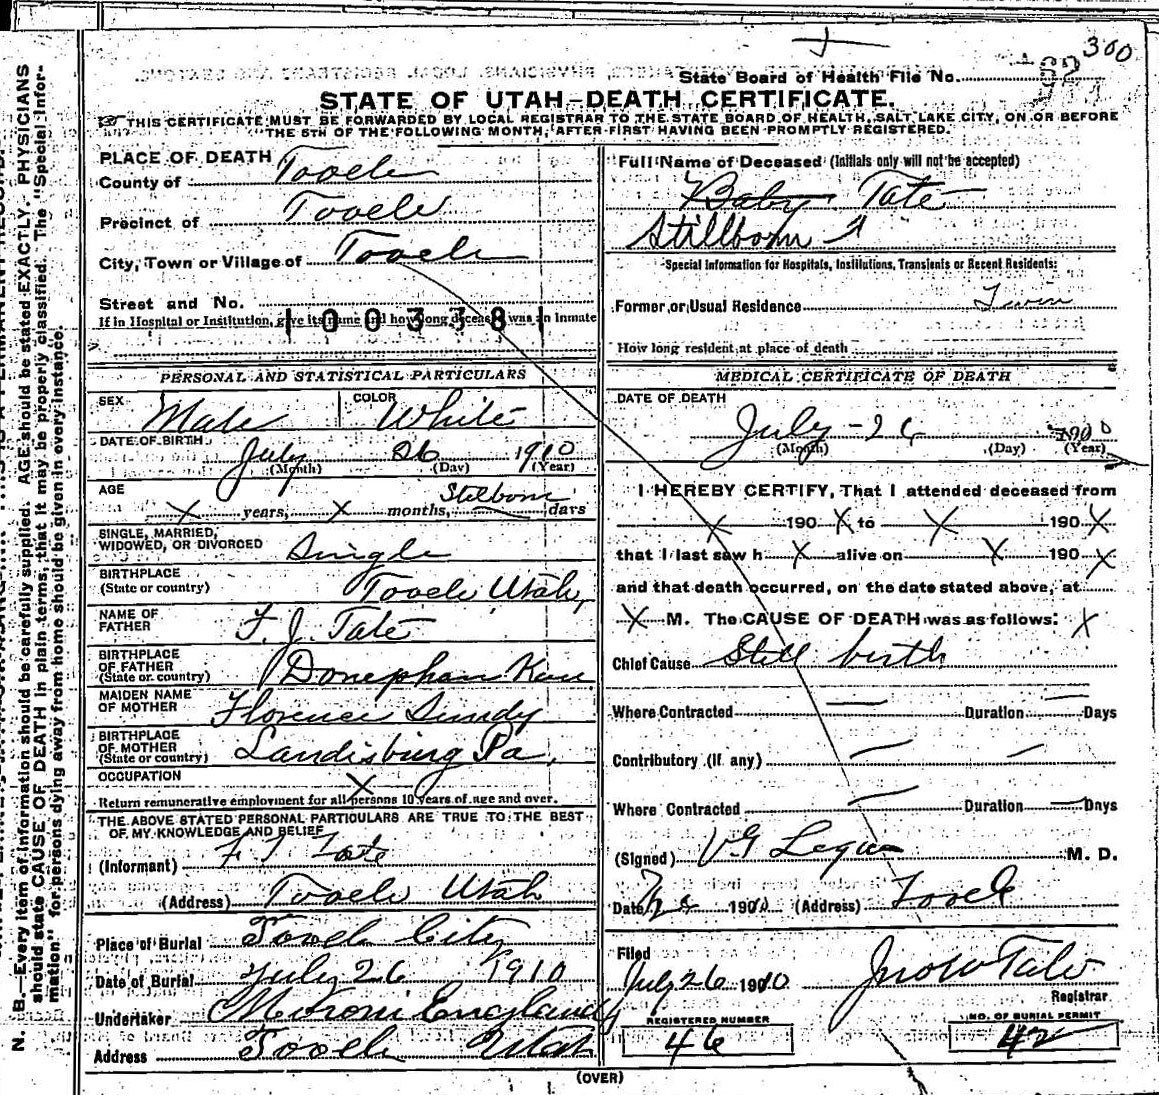 300
State Board of Health File No.
STATE OF UTAH—DEATH CERTIFICATE.
THIS CERTIFICATE MUST BE FORWARDED BY LOCAL REGISTRAR TO THE STATE BOARD OF HEALTH, SALT LAKE CITY, ON OR BEFORE
THE 5TH OF THE FOLLOWING MONTH, AFTER FIRST HAVING BEEN PROMPTLY REGISTERED.
PLACE OF DEATH
County of Tooele
Precinct of Tooele
City, Town or Village of Tooele
Street and No.
If in Hospital or Institution, give its name and how long deceased was an inmate
1003381
PERSONAL AND STATISTICAL PARTICULARS
SEX Male COLOR White
DATE OF BIRTH July 26 1910
(Month) (Day) (Year)
AGE Stilborn
X years, X months, days
SINGLE, MARRIED,
WIDOWED, OR DIVORCED Single
BIRTHPLACE
(State or country) Tooele Utah,
NAME OF
FATHER F. J. Tate
BIRTHPLACE
OF FATHER
(State or country) Donephan Kan
MAIDEN NAME
OF MOTHER Florence Sundy
BIRTHPLACE
OF MOTHER
(State or country) Landisburg Pa,
OCCUPATION X
Return remunerative employment for all persons 10 years of age and over.
THE ABOVE STATED PERSONAL PARTICULARS ARE TRUE TO THE BEST
OF MY KNOWLEDGE AND BELIEF
(Informant) F. J. Tate
(Address) Tooele Utah
Place of Burial Tooele City
Date of Burial July 26 1910
Undertaker Moroni England
Address Tooele Utah
Full Name of Deceased (Initials only will not be accepted)
Baby Tate
Stillborn
Special Information for Hospitals, Institutions, Transients or Recent Residents:
Former or Usual Residence Twin
How long resident at place of death
MEDICAL CERTIFICATE OF DEATH
DATE OF DEATH
July - 26 1900
(Month) (Day) (Year)
I HEREBY CERTIFY, That I attended deceased from
X 190 X to X 190 X
that I last saw h X alive on X 190 X
and that death occurred, on the date stated above, at
X M. The CAUSE OF DEATH was as follows: X
Chief Cause Still birth
Where Contracted — Duration — Days
Contributory (If any) — —
Where Contracted — Duration — Days
(Signed) M. D.
Date 1910 (Address) Tooele
Filed
July 26 1910 Jno W Tate
Registrar
REGISTERED NUMBER NO. OF BURIAL PERMIT
46 42
(OVER)
N. B.—Every item of information should be carefully supplied. AGE should be stated EXACTLY. PHYSICIANS
should state CAUSE OF DEATH in plain terms, that it may be properly classified. The "Special Infor-
mation" for persons dying away from home should be given in every instance.